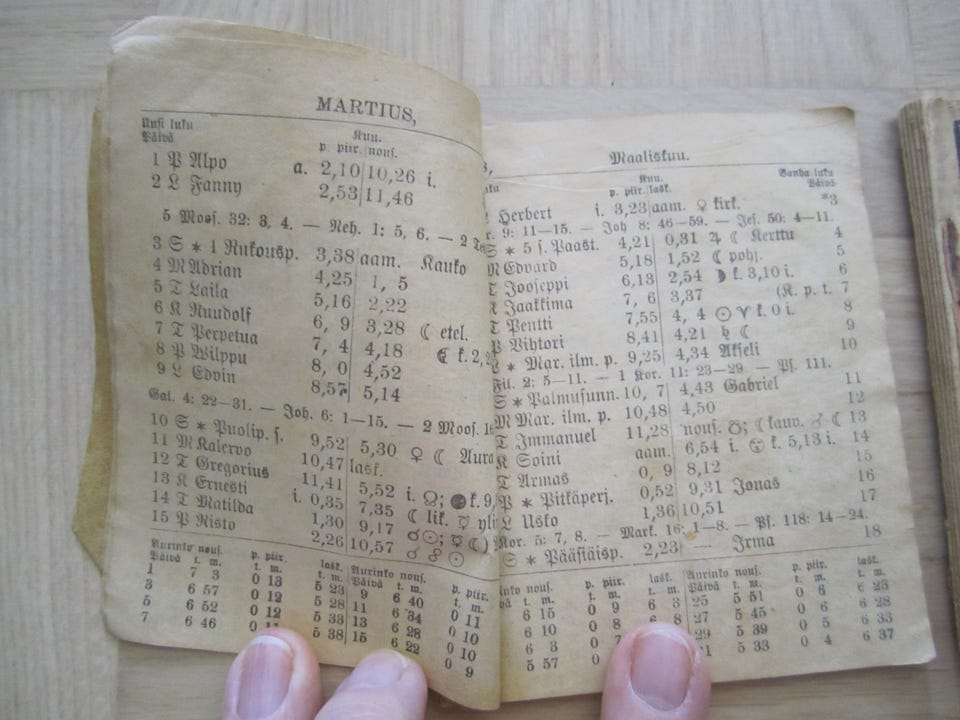 MARTIUS,
Uusi luku Kuu.
Päivä p. piir. nous.
1 P Alpo a. 2,10 10,26 i.
2 L Fanny 2,53 11,46
5 Moos. 32: 3, 4. — Neh. 1: 5, 6. — 2
3 S * 1 Rukousp. 3,38 aam. Kauko
4 M Adrian 4,25 1, 5
5 T Laila 5,16 2,22
6 K Ruudolf 6, 9 3,28 ☾ etel.
7 T Perpetua 7, 4 4,18 k. 2,
8 P Wilppu 8, 0 4,52
9 L Edvin 8,57 5,14
Gal. 4: 22—31. — Joh. 6: 1—15. — 2 Moos.
10 S * Puolip. s. 9,52 5,30 ♀ ☾ Aura
11 M Kalervo 10,47 lask.
12 T Gregorius 11,41 5,52 i. ☊; k. 9,
13 K Ernesti i. 0,35 7,35 ☾ lik. ☿
14 T Matilda 1,30 9,17 ☌ ☉; ☿ ☾
15 P Risto 2,26 10,57 ☌ ☉
Aurinko nous. p. piir. lask. Aurinko nous. p. piir.
Päivä t. m. t. m. t. m. Päivä t. m. t. m.
1 7 3 0 13 5 23 9 6 40 0 11
3 6 57 0 12 5 28 11 6 34 0 10
5 6 52 0 12 5 33 13 6 28 0 10
7 6 46 0 5 38 15 6 22 0 9
Maaliskuu.
Kuu. Vanha luku
p. piir. lask. Päivä
Herbert i. 3,23 aam. ♀ kirk. *3
9: 11—15. — Joh 8: 46—59. — Jes. 50: 4—11.
S * 5 s. Paast. 4,21 0,31 ♃ ☾ Kerttu 4
M Edvard 5,18 1,52 ☾ pohj. 5
T Jooseppi 6,13 2,54 ☽ k. 3,10 i. 6
K Jaakkima 7, 6 3,37 (K. p. t. 7
T Pentti 7,55 4, 4 ☉ ♈ k. 0 i. 8
P Vihtori 8,41 4,21 ♄ ☾ 9
L * Mar. ilm. p. 9,25 4,34 Akseli 10
Fil. 2: 5—11. — 1 Kor. 11: 23—29 — Ps. 111.
S * Palmusunn. 10, 7 4,43 Gabriel 11
M Mar. ilm. p. 10,48 4,50 12
T Immanuel 11,28 nous. ☋; ☾ kauv. ☌ ☾ 13
K Soini aam. 6,54 i. k. 5,13 i. 14
T Armas 0, 9 8,12 15
P * Pitkäperj. 0,52 9,31 Jonas 16
L Usko 1,36 10,51 17
Kor. 5: 7, 8. — Mark. 16: 1—8. — Ps. 118: 14—24.
S * Pääsiäisp. 2,23 — Irma 18
nous. p. piir. lask. Aurinko nous. p. piir. lask.
t. m. t. m. t. m. Päivä t. m. t. m. t. m.
6 15 0 9 6 3 25 5 51 0 6 6 23
6 10 0 8 6 8 27 5 45 0 6 6 28
6 3 0 7 29 5 39 0 5 6 33
5 57 0 5 33 0 4 6 37